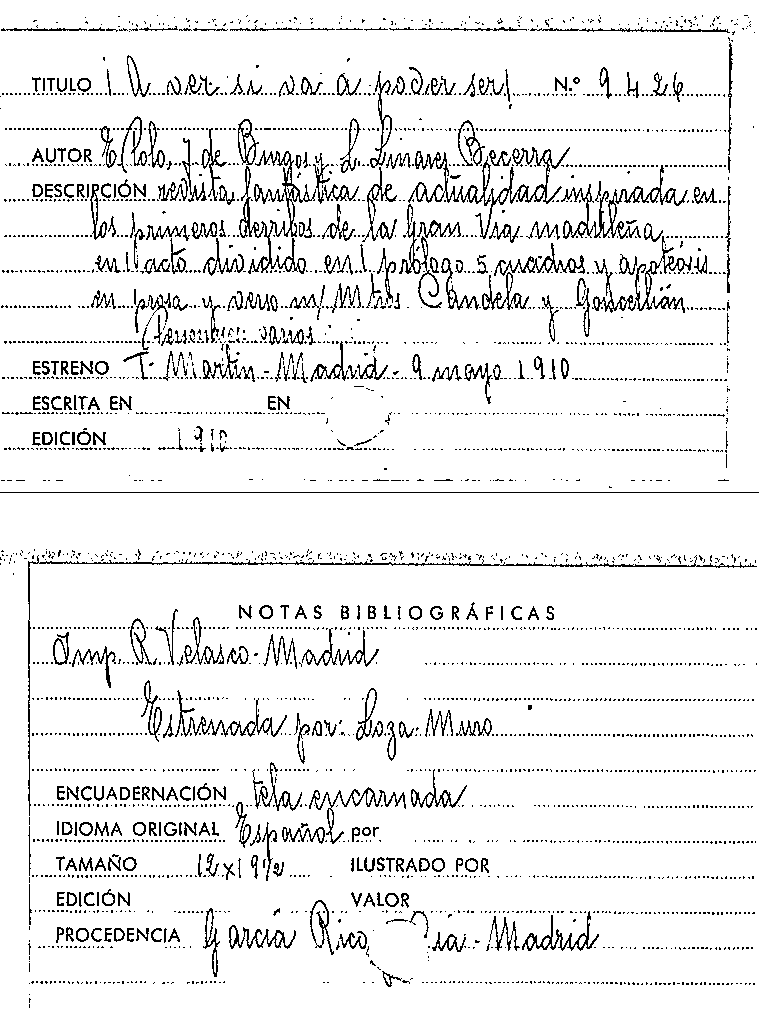 TITULO ¡A ver si va á poder ser! N.º 9426
AUTOR E. Polo, J. de Burgos y L. Linares Becerra
DESCRIPCIÓN revista fantástica de actualidad inspirada en
los primeros derribos de la Gran Vía madrileña,
en 1 acto dividido en 1 prólogo 5 cuadros y apoteósis
en prosa y verso m/ Mtros Candela y
Personajes: varios
ESTRENO T. Martín - Madrid - 9 mayo 1910
ESCRITA EN EN
EDICIÓN 1910
NOTAS BIBLIOGRÁFICAS
Imp. R. Velasco - Madrid
Estrenada por: Loza-Muro
ENCUADERNACIÓN tela encarnada
IDIOMA ORIGINAL Español por
TAMAÑO 12x19½ ILUSTRADO POR
EDICIÓN VALOR
PROCEDENCIA García Rico - Madrid